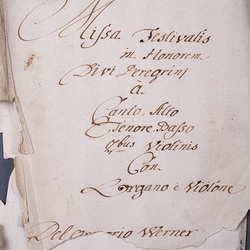 Missa Festivalis
in Honorem
Divi Peregrini
â
Canto, Alto
Tenore, Basso
2bus Violinis
Con
Lorgano è Violone
Del Werner